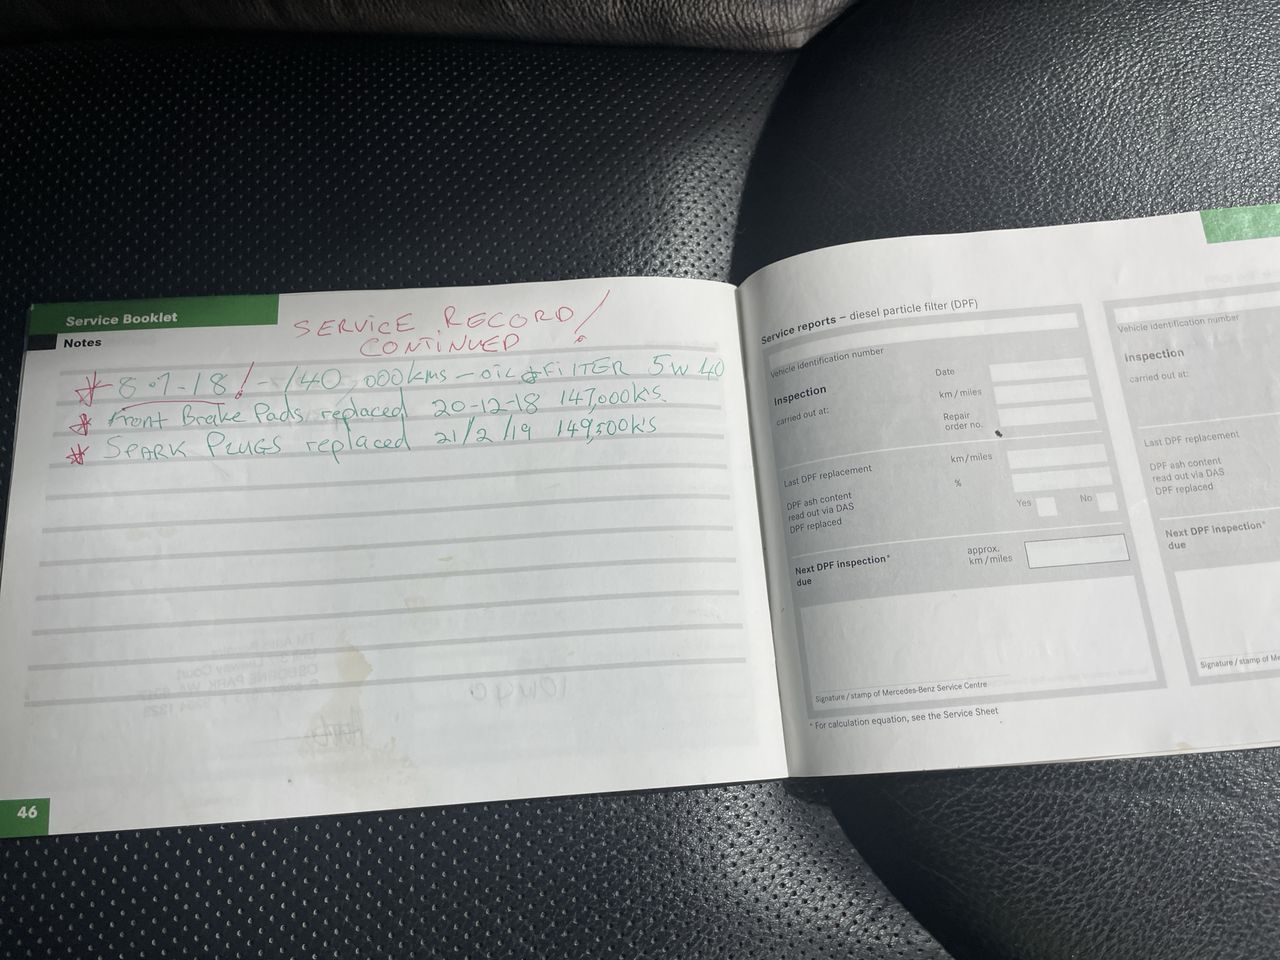 Service Booklet
Notes
SERVICE RECORD!
CONTINUED
* 8-7-18! - 140 000 kms - oil & FiLTER 5W 40
* Front Brake Pads replaced 20-12-18 147,000k's.
* SPARK PLUGS replaced 21/2/19 149,500k's
46
Service reports – diesel particle filter (DPF)
Vehicle identification number
Inspection
carried out at:
Date
km/miles
Repair
order no.
Last DPF replacement
km/miles
DPF ash content
read out via DAS
%
DPF replaced
Yes
No
Next DPF inspection*
due
approx.
km/miles
Signature/stamp of Mercedes-Benz Service Centre
* For calculation equation, see the Service Sheet
Vehicle identification number
Inspection
carried out at:
Last DPF replacement
DPF ash content
read out via DAS
DPF replaced
Next DPF inspection*
due
Signature/stamp of Me